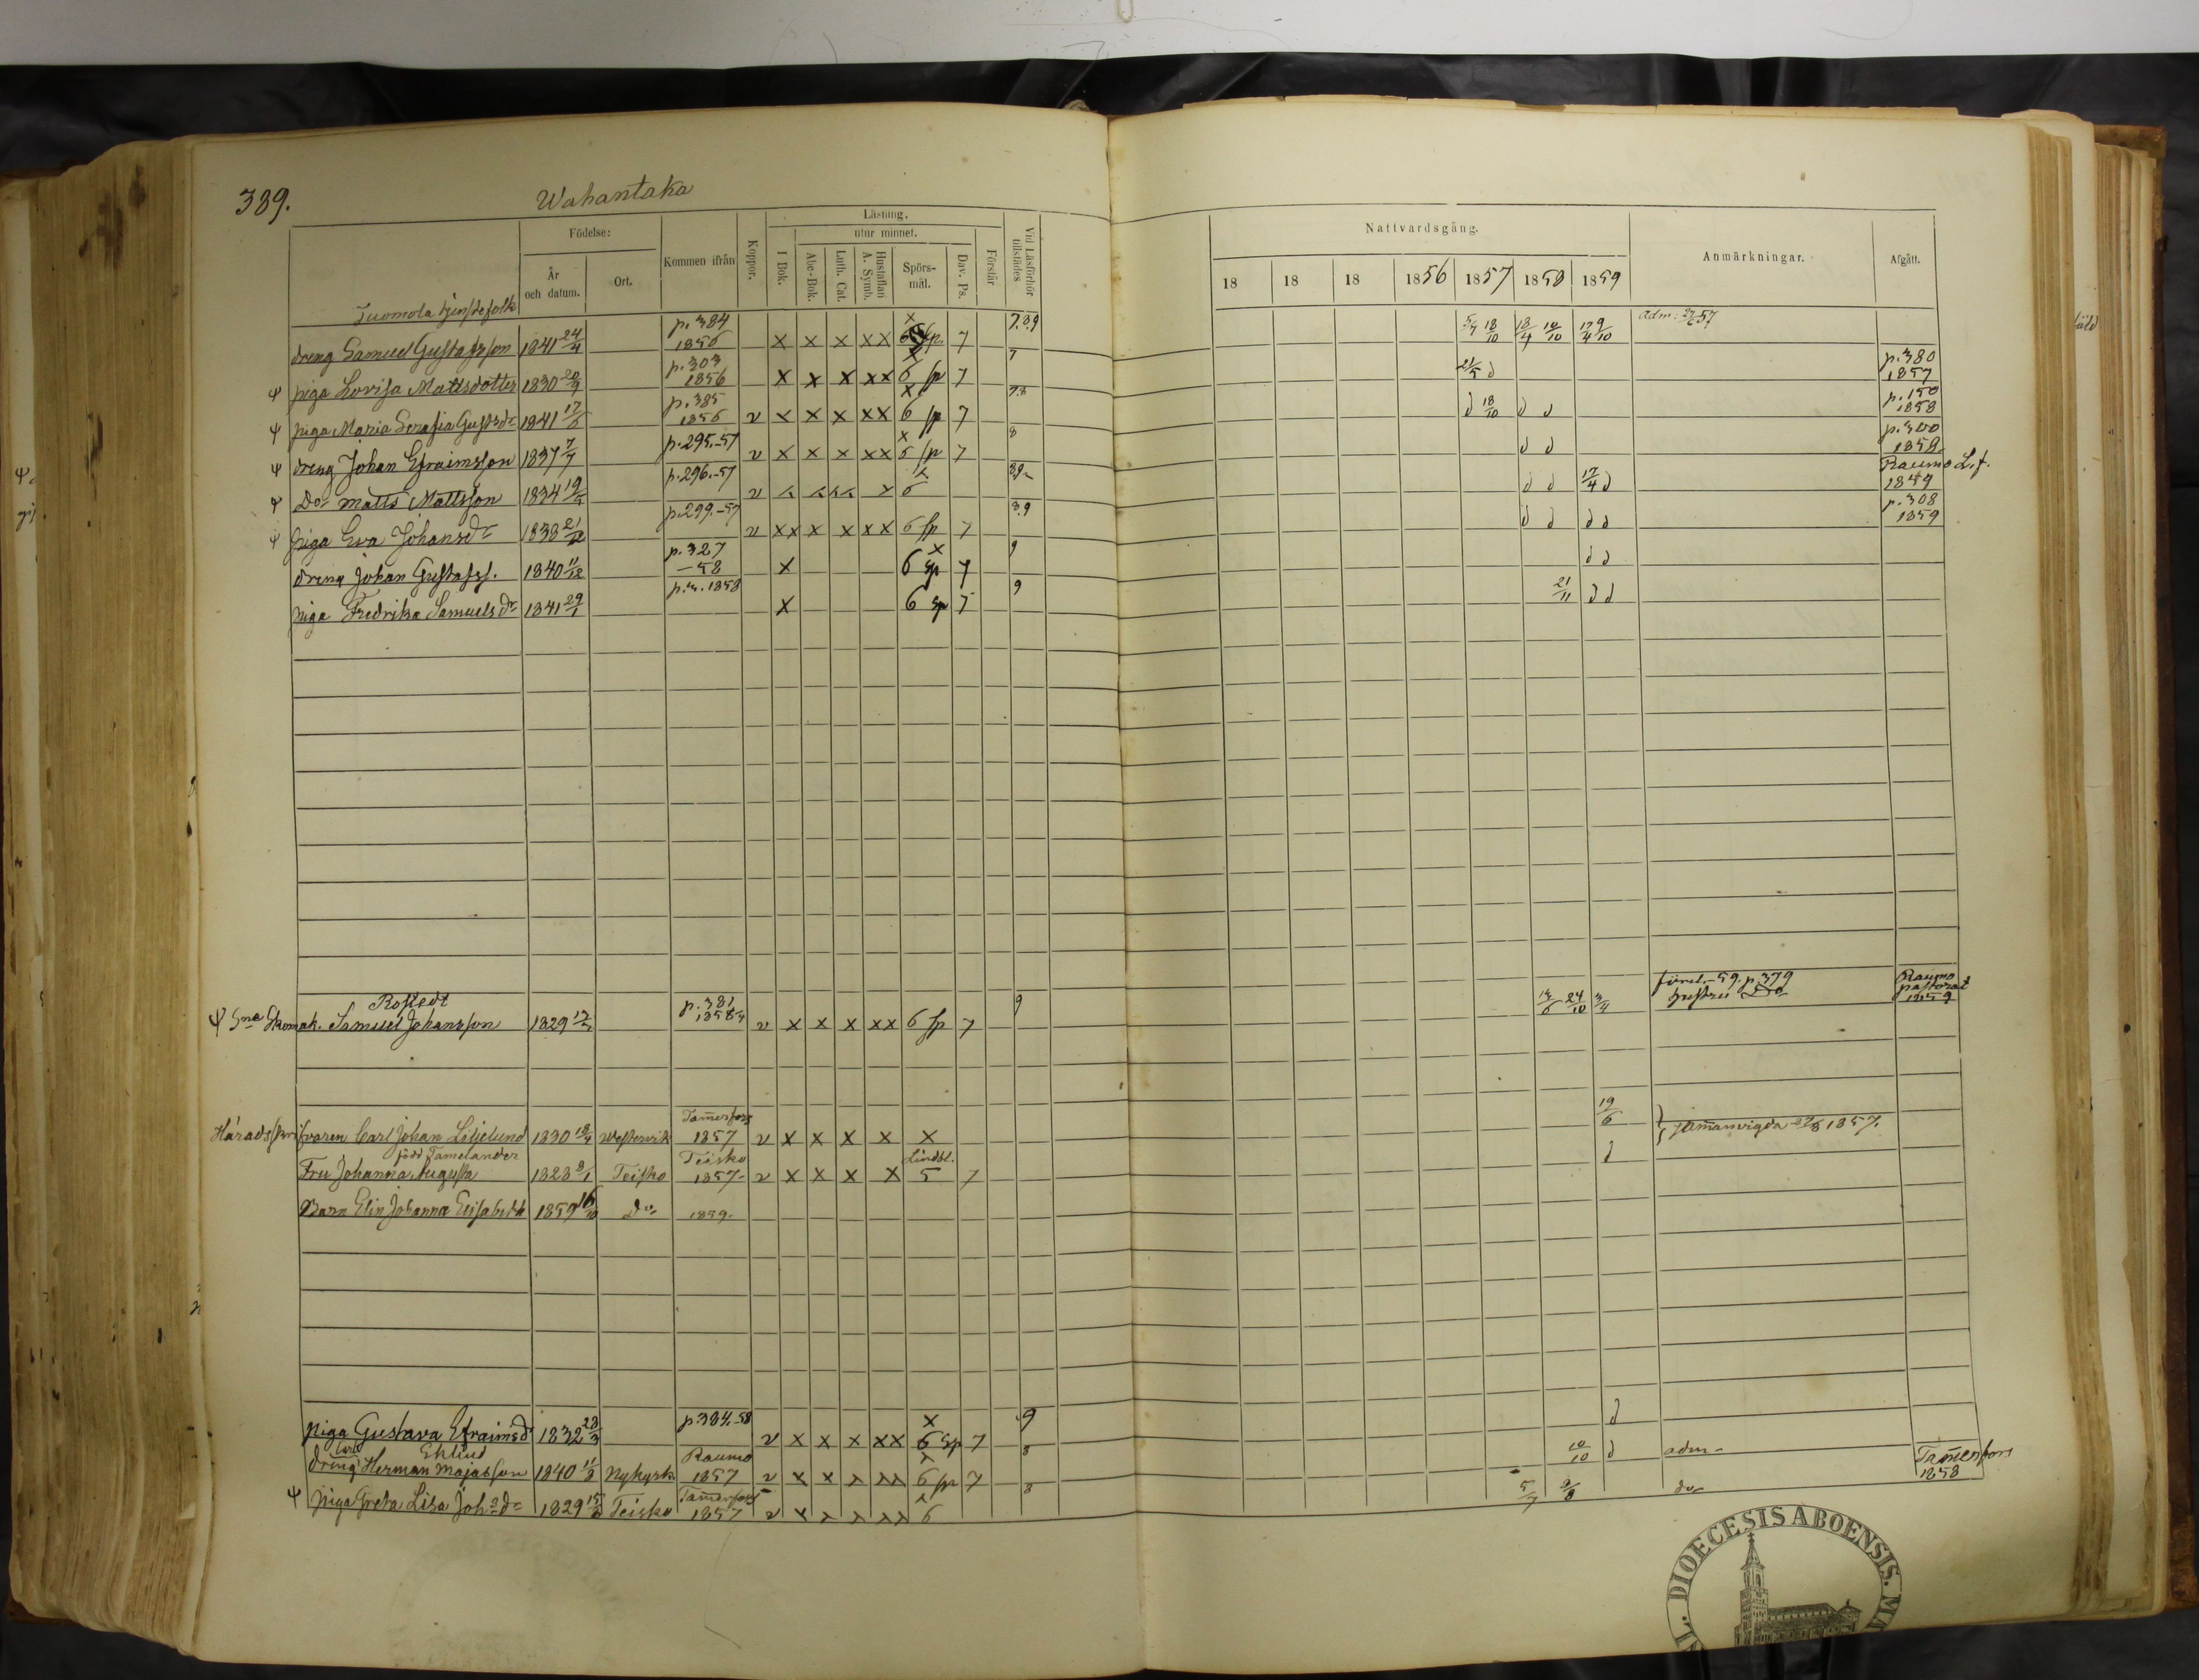 389.
Wahantaka
Födelse: Läsning. Nattvardsgång.
Kommen ifrån Koppor. utur minnet. Förstår Vid Läsförhör tillstädes Anmärkningar. Afgått.
År och datum. Ort. I Bok. Abc-Bok. Luth. Cat. Hustaflan A. Symb. Spörs-mål. Dav. Ps. 18 18 18 1856 1857 1858 1859
Tuomola tjenstefolk
dreng Samuel Gustafsson 1841 24/4 p. 384 1856 x x x x x 6 sp. 7 7.8.9 5/7 18/10 18/4 10/10 17/4 9/10 adm: 57
Ψ piga Lovisa Mattsdotter 1830 p. 303 1856 x x x x x 6 sp 7 7 21/5 d p. 380 1857
Ψ piga Maria Serafia Gustsdr 1841 p. 385 1856 v x x x x x 6 sp 7 7.8 d 18/10 d d p. 150 1858
Ψ dreng Johan Efraimsson 1837 7/7 p. 295.-57 v x x x x x 5 sp 7 8 d d p. 300 1858
Ψ Do Matts Mattsson 1834 p. 296.-57 v 6 8.9 d d 17/4 d Raumo L.f. 1859
Ψ piga Eva Johansdr 1838 p. 299.-57 v x x x x x x 6 sp 7 8.9 d d d d p. 308 1859
dreng Johan Gustafss. 1840 11/12 p. 327 -58 x 6 sp 7 9 d d
piga Fredrika Samuelsdr 1841 29/1 p. n. 1858 x 6 sp 7 9 21/11 d d
Rostedt
Ψ Skomak. Samuel Johansson 1829 p. 381 1858 v x x x x x 6 sp 7 9 24/10 -59. p. 379 Raumo pastorat 1859
Häradsskrifvaren Carl Johan Liljelund 1830 Westervik Tam̄erfors 1857 v x x x x x 19/6 } sam̄anvigda 1857.
född Tamelander
Fru Johanna Augusta 1828 Teisko Teisko 1857 v x x x x Lindbl. 5 7 d
Barn Elin Johanna Elisabeth 1859 16/10 Do 1859.
piga Gustava Efraimsdr 1832 28/3 p. 384.58 v x x x x x 6 sp 7 9 d
Carl Eklund
dreng Herman Majasson 1840 Nykyrk. Raumo 1857 v x x 6 sp 7 8 10/10 d adm
Ψ piga Greta Lisa Joh:dr 1829 Teisko Tam̄erfors 1857 v 6 8 5/7 do Tam̄erfors 1858
DIOECESIS ABOENSIS.